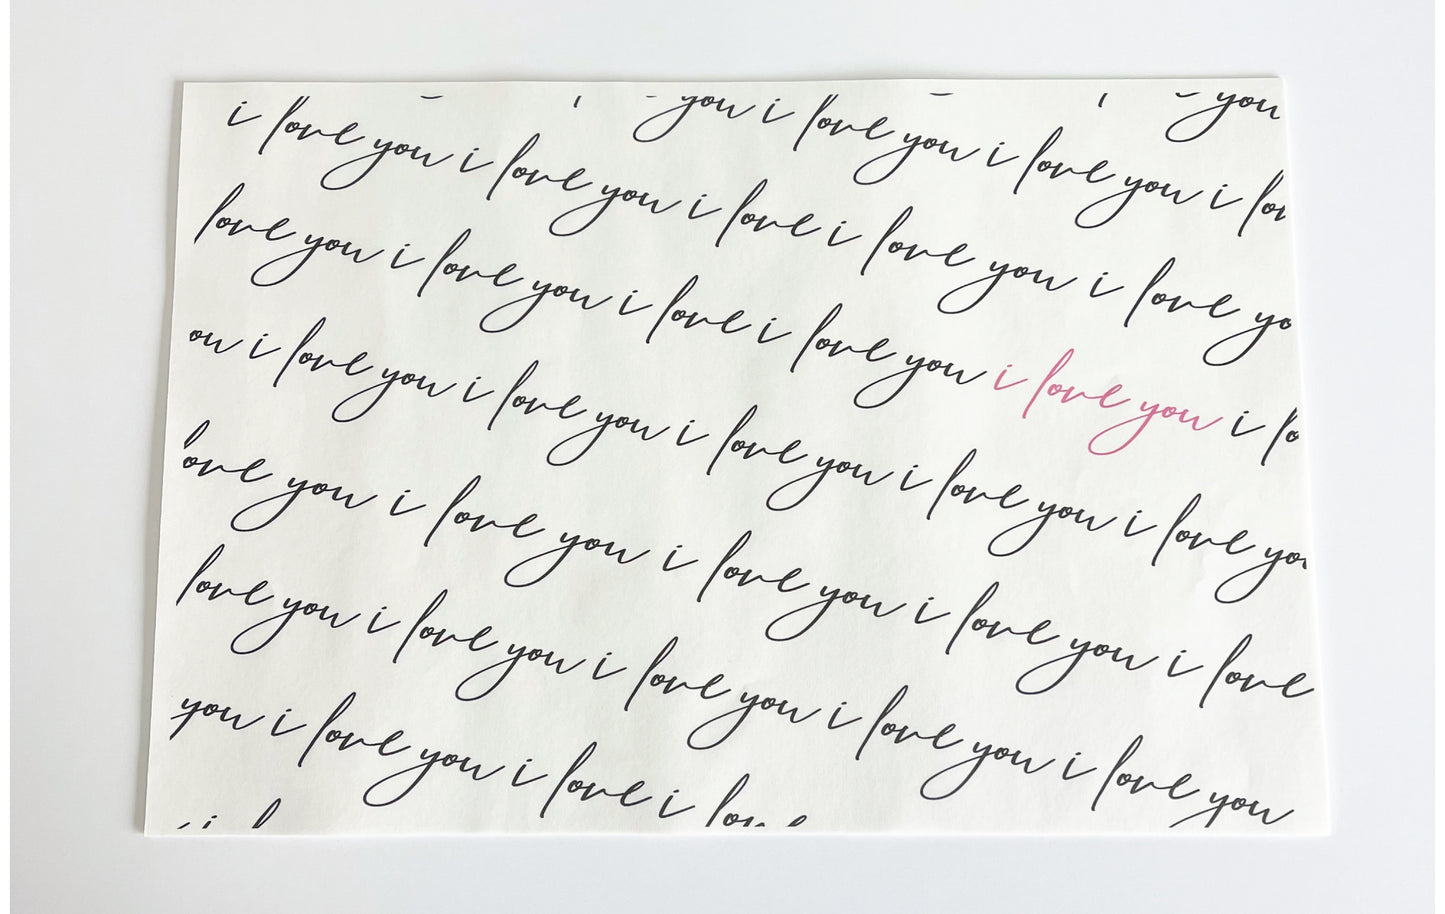 you
you i love you i love you i lov
i love you i love you i love i love you i love yo
love you i love you i love i love you i love you i lo
ou i love you i love you i love you i love you i love you
love you i love you i love you i love you i love
love you i love you i love you i love you i love you
you i love you i love i love
i l